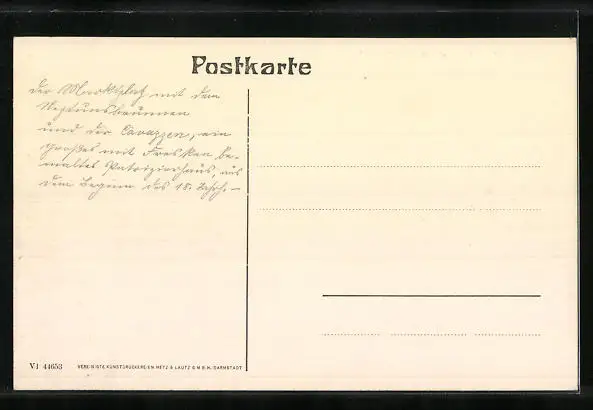 Postkarte
der Marktplatz mit dem
Neptunsbrunnen
und der Cavazzen, ein
großes mit Fresken be-
maltes Patrizierhaus, aus
dem Beginn des 18. Jahrh. –
VI 44653
VEREINIGTE KUNSTDRUCKEREIEN METZ & LAUTZ G.M.B.H. DARMSTADT